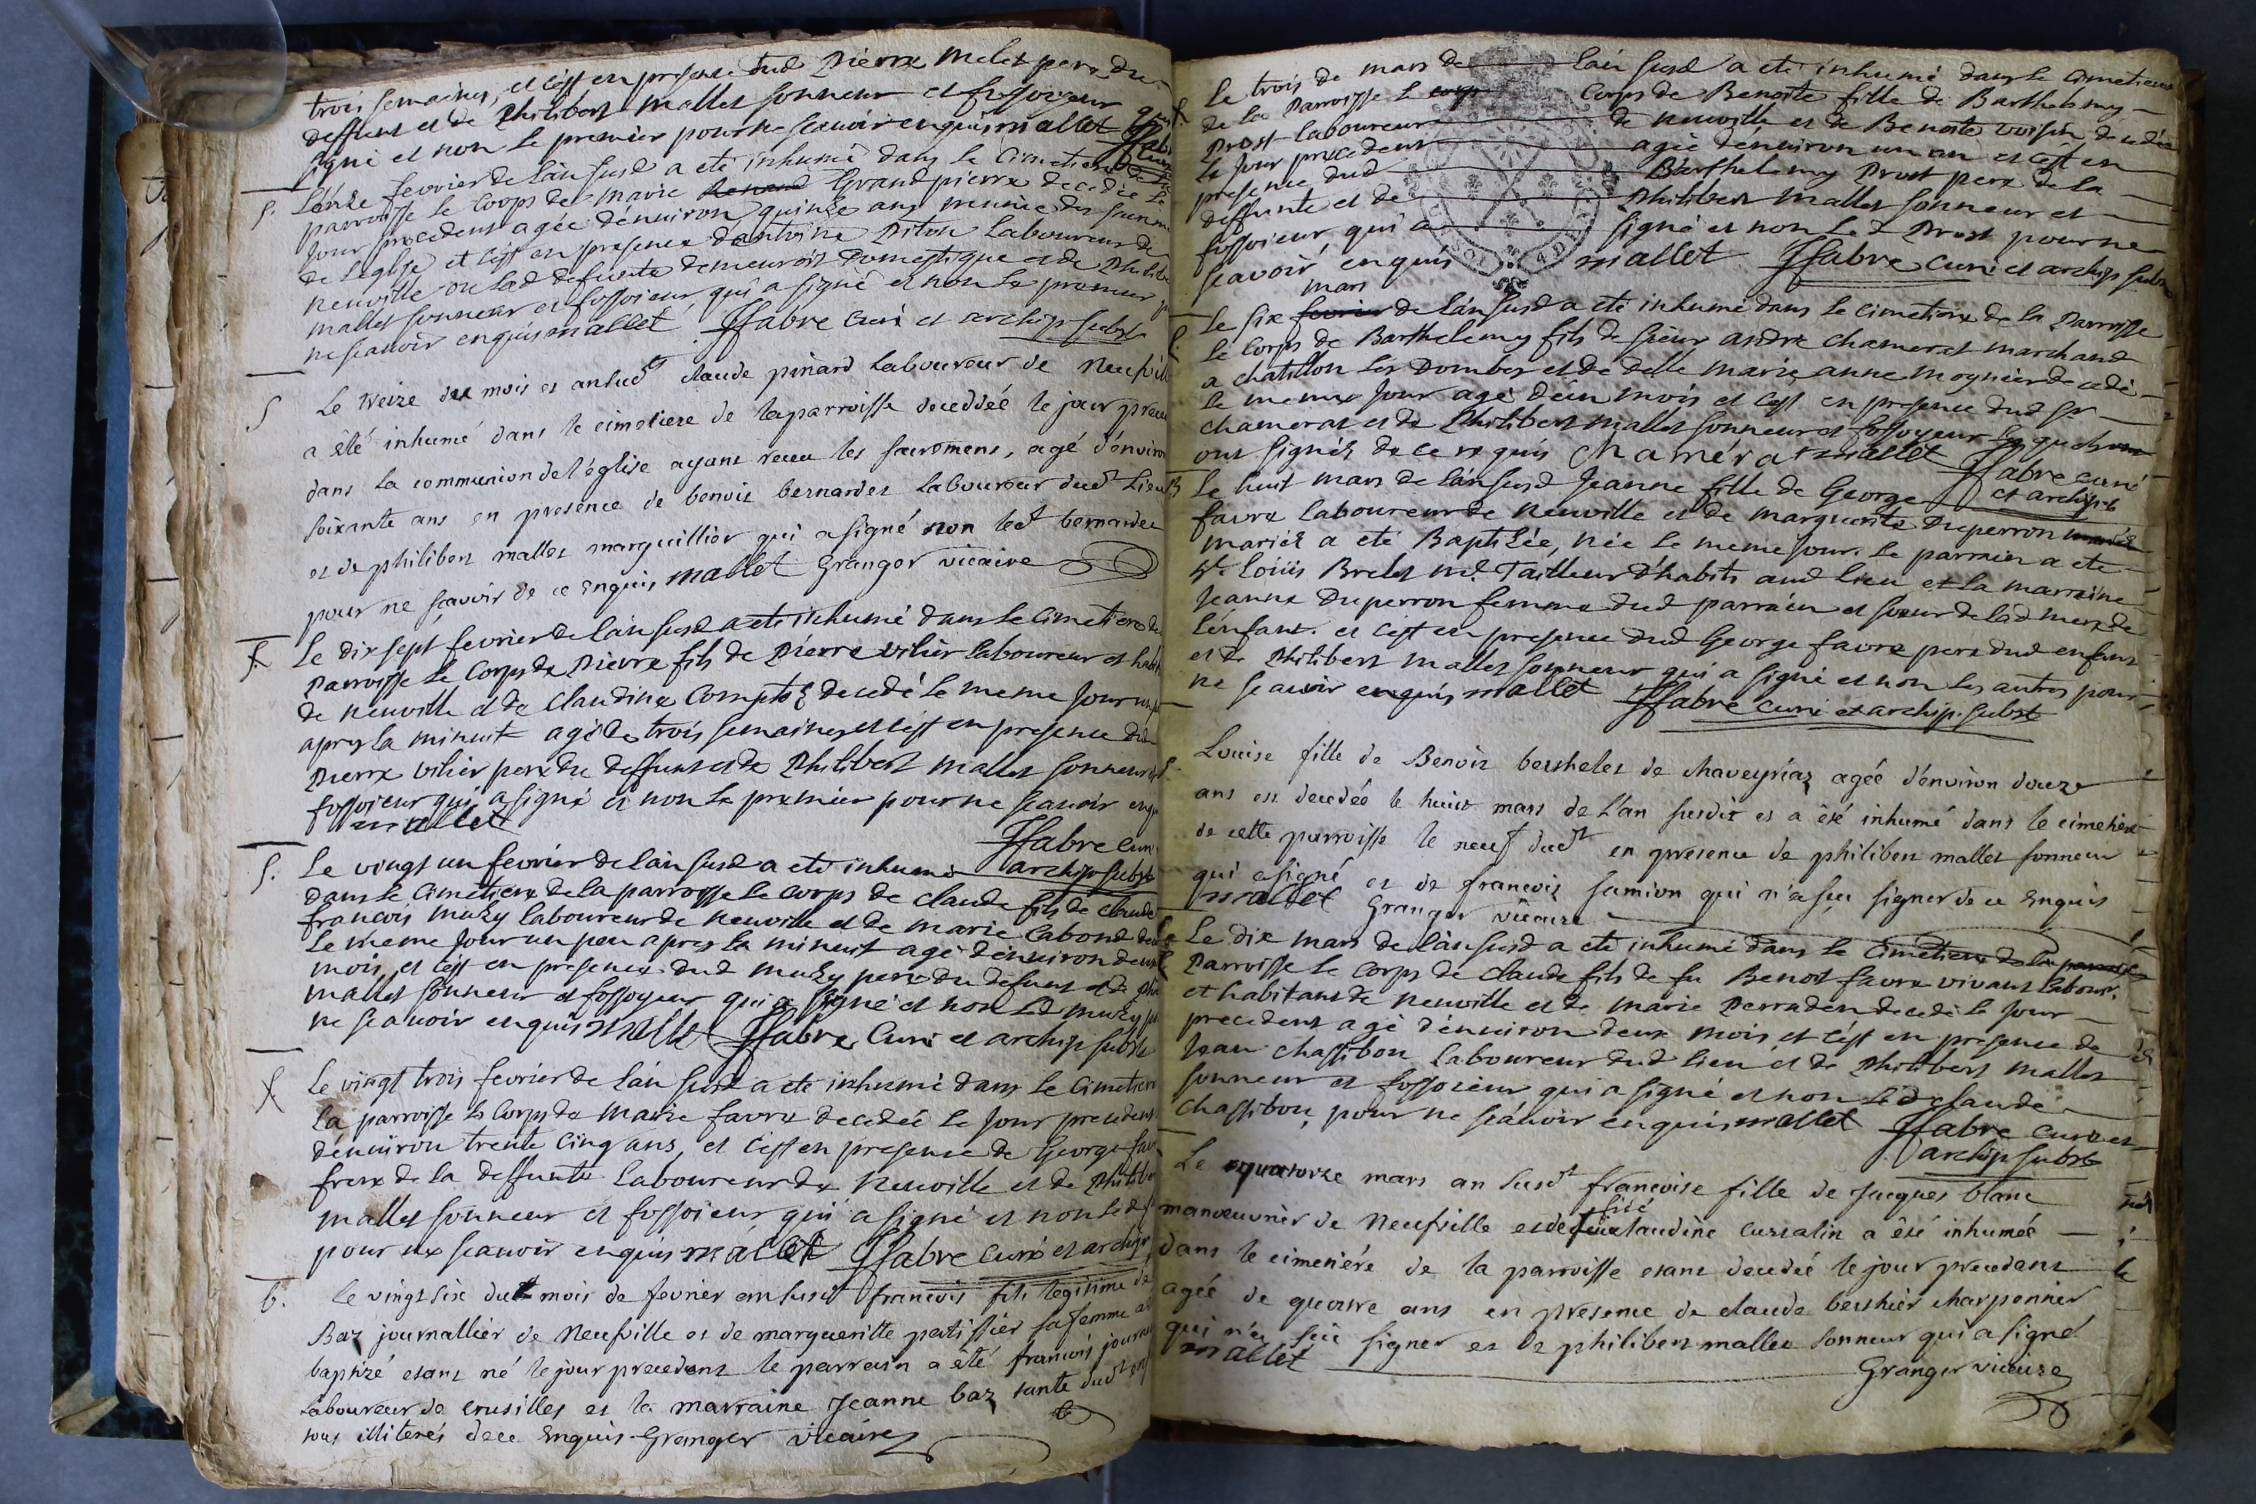 trois semaines, et c'est en presence dud Pierre melet pere du
deffunt et de Philibert mallet sonneur et fossoyeur qui a
signé et non le premier pour ne scavoir enquis mallet
S. L'onze fevrier de l'an susd a eté inhumé dans le Cimetiere de la
parroisse le Corps de marie Grandpierre decedée le
jour precedent agée d'environ quinze ans munie des sacremens
de L'eglise, et c'est en presence d'antoine Piton Laboureur de
neuville ou lad defunte demeuroit domestique et de Philibert
mallet sonneur et fossoieur, qui a signé et non le premier pr
ne scavoir enquis mallet ffabre curé et archip subst
S Le treize du mois et an susdt claude pinard Laboureur de Neufvill
a été inhumé dans le cimetiere de la parroisse deceddée le jour prece
dans La communion de l'église ayant receu les sacremens, agé d'environ
soixante ans en presence de benoit bernardet Laboureur dudt Lieu
et de philibert mallet marguillier qui a signé non ledt bernardet
pour ne sçavoir de ce Enquis mallet Granger vicaire
S. Le dix sept fevrier de l'an susd a eté inhumé dans le Cimetiere de
Parroisse le Corps de Pierre fils de Pierre vilier laboureur et habit
de neuville et de Claudine Comptet decedé le meme jour un p
apres la minuit agé de trois semaines et c'est en presence dud
Pierre vilier pere du deffunt et de Philibert mallet sonneur et
fossoieur qui a signé et non le premier pour ne scavoir enqu
mallet ffabre curé
S. Le vingt un fevrier de l'an susd a eté inhumé archip subst
dans le Cimetiere de la parroisse le corps de claude fils de claude
francois muzy laboureur de neuville et de marie Cabond dece
le meme jour un peu apres la minuit agé d'environ deux
mois, et c'est en presence dud muzy pere du defunt et de phi
mallet sonneur et fossoyeur qui a signé et non led muzy pr
ne scavoir enquis mallet ffabre Curé et archip subst
S. Le vingt trois fevrier de l'an susd a eté inhumé dans le Cimetiere
La parroisse le Corps de marie favre decedée le jour precedent
d'environ trente cinq ans, et c'est en presence de George fav
frere de la deffunte Laboureur de neuville et de Philiber
mallet sonneur et fossoieur, qui a signé et non led f
pour ne scavoir enquis mallet ffabre curé et archip
b. Le vingt six dudt mois de fevrier an susdt francois fils legitime de
Baz journallier de Neufville et de margueritte patissier sa femme a
baptizé etant né le jour precedent le parrain a été francois journ
Laboureur de crusilles et la marraine Jeanne baz tante dudt enf
tous illiterés de ce Enquis Granger vicaire
S. Le trois de mars de l'an susd a eté inhumé dans le Cimetiere
de la Parroisse le Corps de Benoite fille de Barthelemy
Prost laboureur de neuville et de Benoite voisin decedée
le jour precedent agée d'environ un an et c'est en
presence dud Barthelemy Prost pere de la
deffunte et de Philibert mallet sonneur et
fossoieur, qui a signé et non led Prost pour ne
scavoir enquis mallet ffabre curé et archip subst
mars
S Le six fevrier de l'an susd a eté inhumé dans le cimetiere de la Parroisse
le Corps de Barthelemy fils de sieur andre chamerat marchand
a chatillon les Dombes et de delle marie anne mognier decedé
le meme jour agé d'un mois et c'est en presence dud sr
chamerat et de Philibert mallet sonneur et fossoyeur lesquels
ont signés de ce requis chaméra mallet ffabre curé
et archip
B Le huit mars de l'an susd Jeanne fille de George
favre laboureur de neuville et de marguerite Duperron
mariés a eté Baptisée, née le meme jour. le parrain a eté
sr Loüis Brelet md Tailleur d'habits aud lieu et la marraine
Jeanne Duperron femme dud parrain et soeur de lad mere de
l'enfant. et c'est en presence dud George favre pere dud enfant
et de Philibert mallet sonneur qui a signé et non les autres pour
ne scavoir enquis mallet ffabre curé et archip. subst
S. Louise fille de Benoit berthelet de chaveyriaz agée d'environ douze
ans est decedée le huit mars de L'an susdit et a été inhumé dans le cimetiere
de cette parroisse le neuf dudt en presence de philibert mallet sonneur
qui a signé et de francois samion qui n'a sçu signer de ce Enquis
mallet Granger vicaire
S. Le dix mars de l'an susd a eté inhumé dans le Cimetiere de la parroisse
Parroisse le Corps de claude fils de fu Benoit favre vivant labour.
et habitant de neuville et de marie Perraden decedé le jour
precedent agé d'environ deux mois, et c'est en presence de
Jean chassibou laboureur dud lieu et de Philibert mallet
sonneur et fossoieur qui a signé et non led claude
chassibou, pour ne scavoir enquis mallet ffabre curé et
archip subst
Le quatorze mars an susdt francoise fille de Jacques blanc
manoeuvrier de Neufville et de claudine curtalin a été inhumée
dans le cimetiére de la parroisse etant decedée le jour precedent
agée de quatre ans en presence de claude berthier charpentier
qui n'a sçu signer et de philibert mallet sonneur qui a signé
mallet Granger vicaire